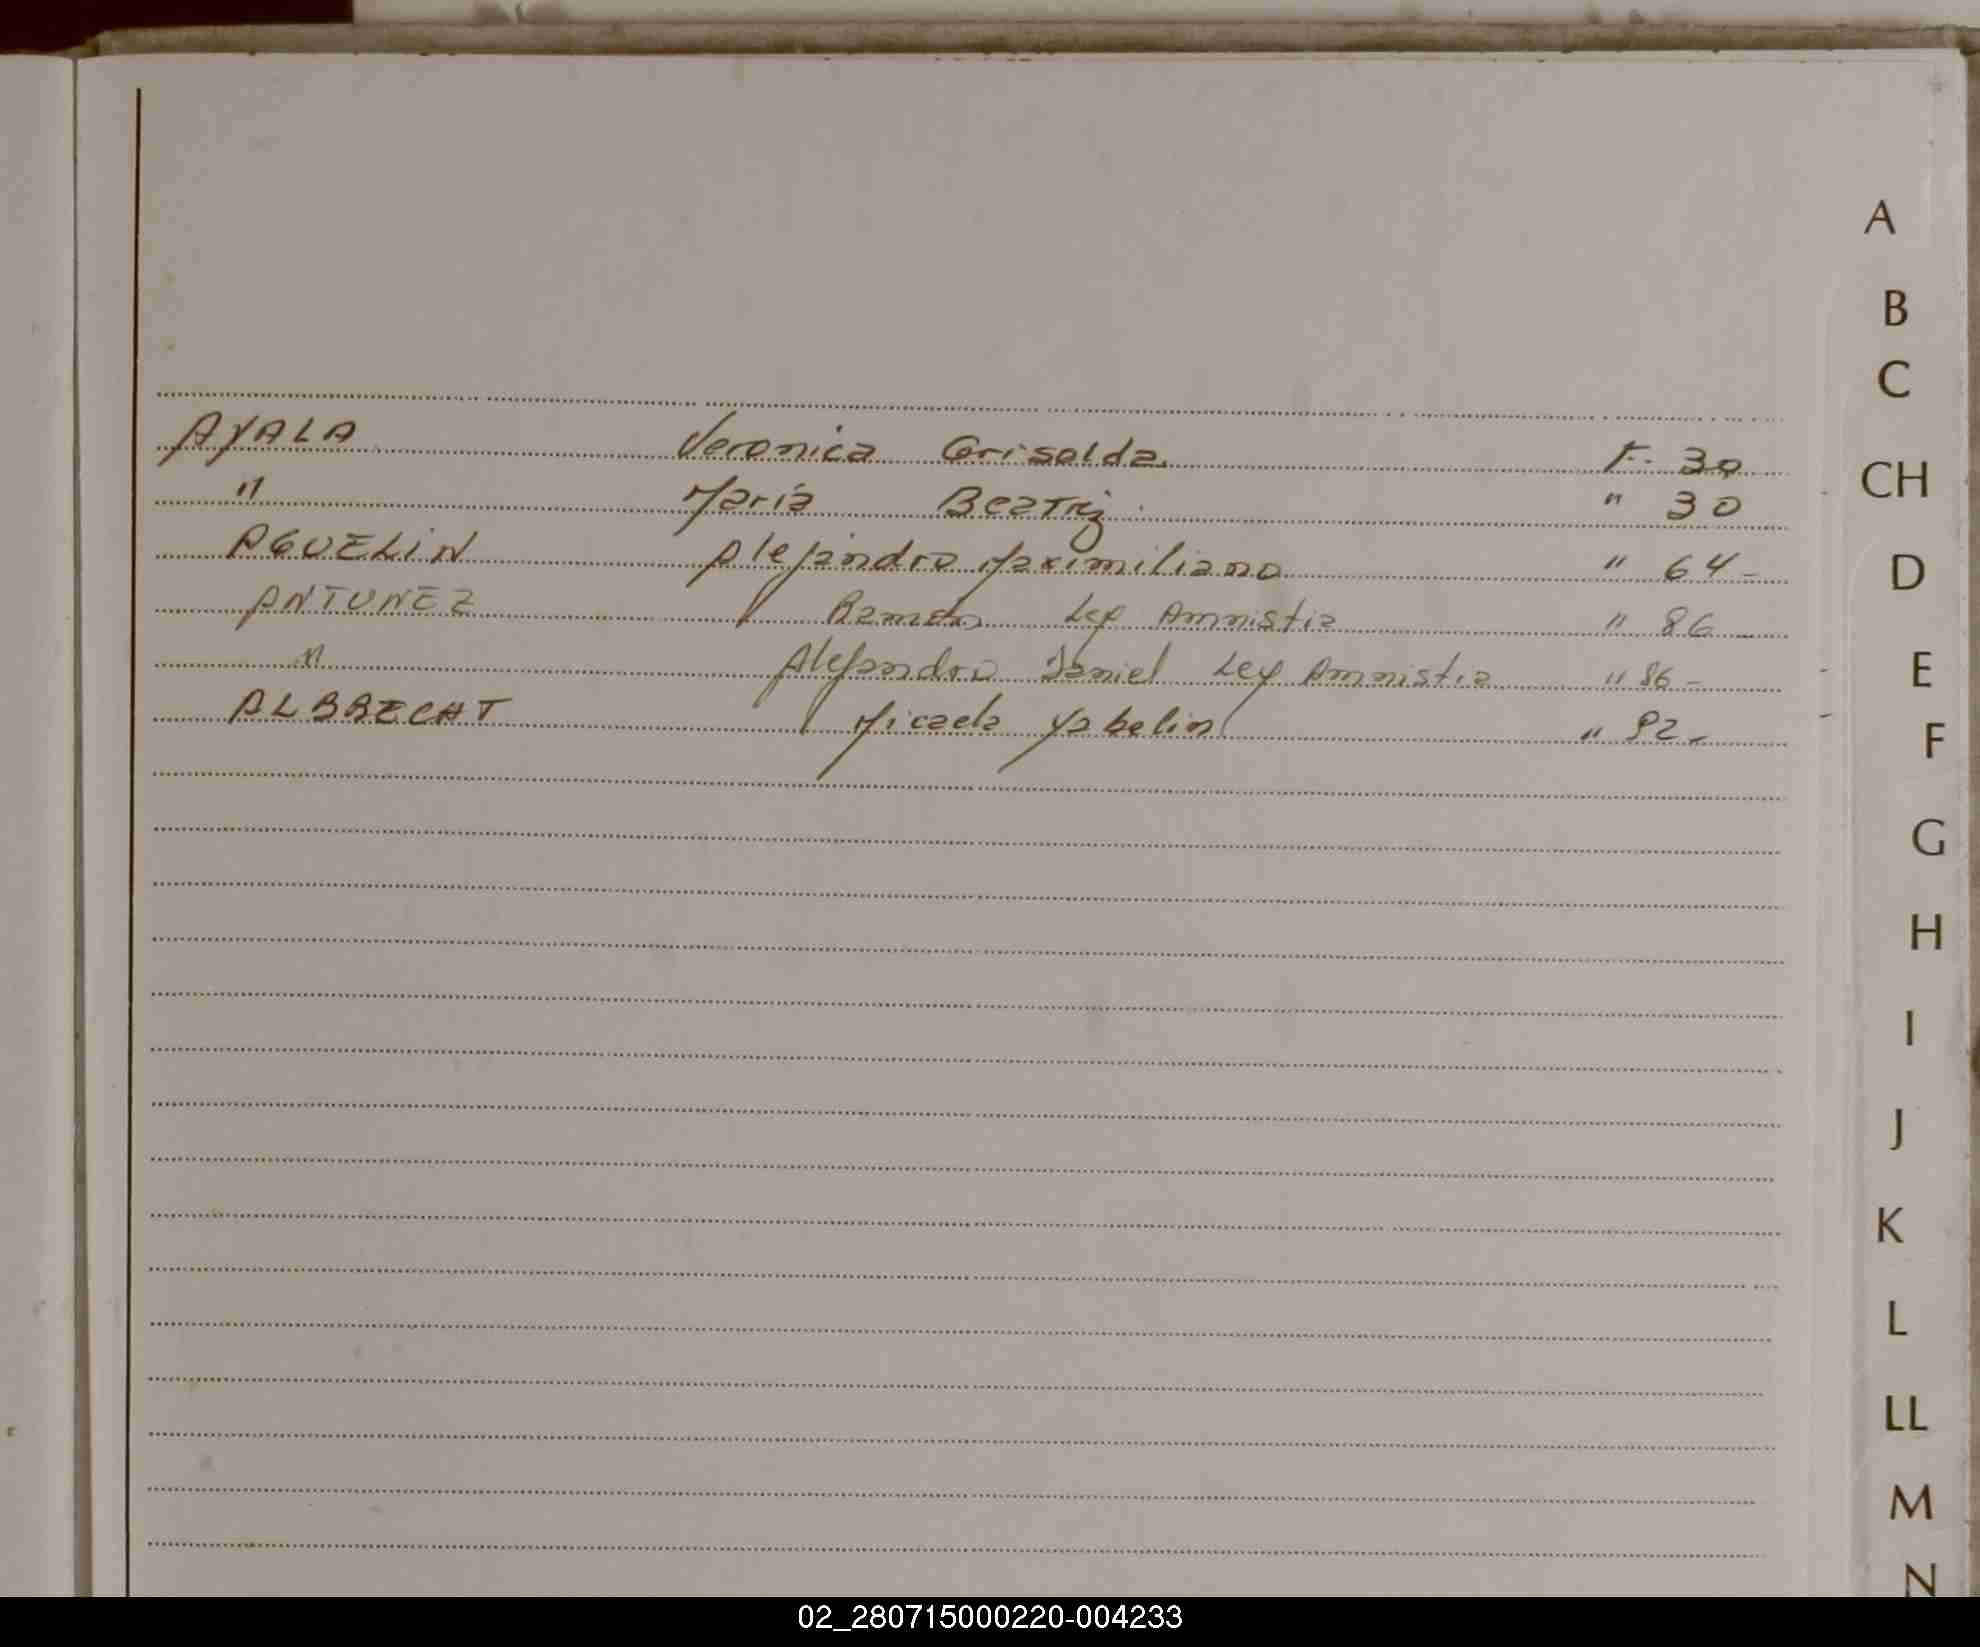 AYALA Veronica Griselda. F. 30
" Maria Beatriz " 30
AGUELIN Alejandro Maximiliano " 64-
ANTUNEZ Ramon Ley Amnistia " 86-
" Alejandro Daniel Ley Amnistia " 86-
ALBRECHT Micaela Yabelin " 92-
A
B
C
CH
D
E
F
G
H
I
J
K
L
LL
M
N
02_280715000220-004233